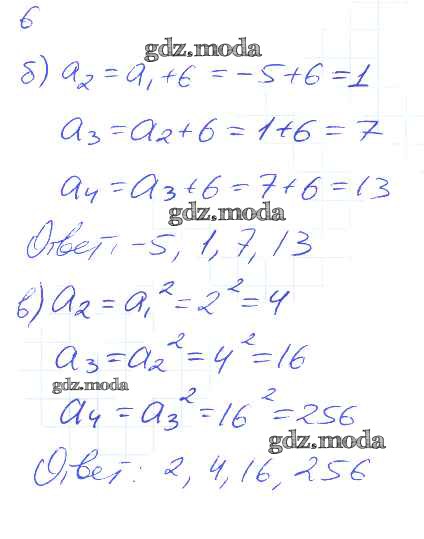 6
gdz.moda
б) a₂ = a₁ + 6 = -5 + 6 = 1
a₃ = a₂ + 6 = 1 + 6 = 7
a₄ = a₃ + 6 = 7 + 6 = 13
gdz.moda
Ответ: -5, 1, 7, 13
в) a₂ = a₁² = 2² = 4
a₃ = a₂² = 4² = 16
gdz.moda
a₄ = a₃² = 16² = 256
gdz.moda
Ответ: 2, 4, 16, 256